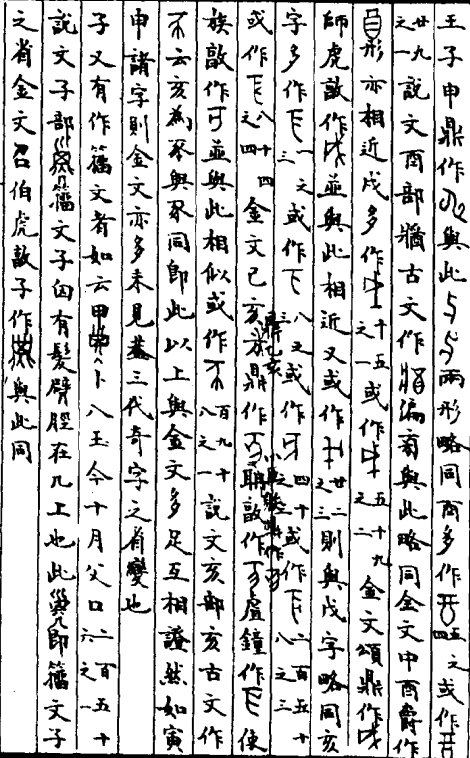 王子申鼎作與此兩形略同酉多作五之四或作
廿九之一說文酉部牆古文作偏旁與此略同金文中酉爵作
形亦相近戌多作十五之一或作五十九之二金文頌鼎作
師虎敦作並與此相近又或作廿二之三則與戊字略同亥
字多作一之三或作八之三或作四十或作二百五十八之三
或作八十四之四金文己亥鼎作耼敦作虘鐘作使
族敦作並與此相似或作百九十八之一說文亥部亥古文作
不云亥為豕與豕同即此以上與金文多足互相證然如寅
申諸字則金文亦多未見葢三代奇字之省變也
子又有作籀文者如云甲卜八王今十月父口二百五十六之一
說文子部籀文子囟有髮臂脛在几上也此即籀文子
之省金文召伯虎敦子作與此同